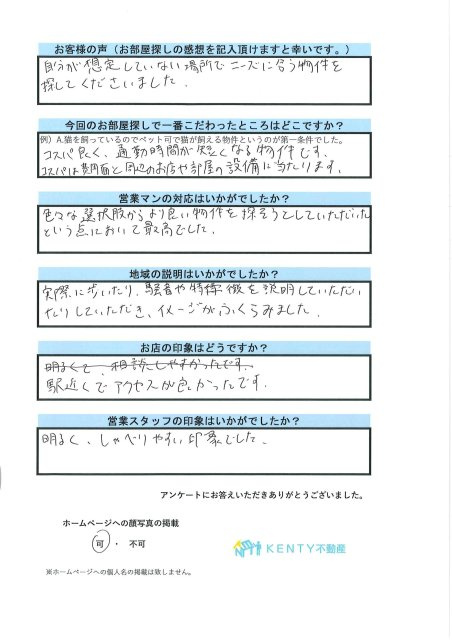 お客様の声（お部屋探しの感想を記入頂けますと幸いです。）
自分が想定していない場所でニーズに合う物件を
探してくださいました.
今回のお部屋探しで一番こだわったところはどこですか？
例）A.猫を飼っているのでペット可で猫が飼える物件というのが第一条件でした。
コスパ良く、通勤時間が短くなる物件です.
コスパは費用面と周辺のお店や部屋の設備に当たります.
営業マンの対応はいかがでしたか？
色々な選択肢からより良い物件を探そうとしていただいた
という点において最高でした.
地域の説明はいかがでしたか？
実際に歩いたり、騒音や特徴を説明していただい
たりしていただき、イメージがふくらみました.
お店の印象はどうですか？
明るくて、相談しやすかったです.
駅近くでアクセスが良かったです.
営業スタッフの印象はいかがでしたか？
明るく、しゃべりやすい印象でした.
アンケートにお答えいただきありがとうございました。
ホームページへの顔写真の掲載
可 ・ 不可
KENTY不動産
※ホームページへの個人名の掲載は致しません。